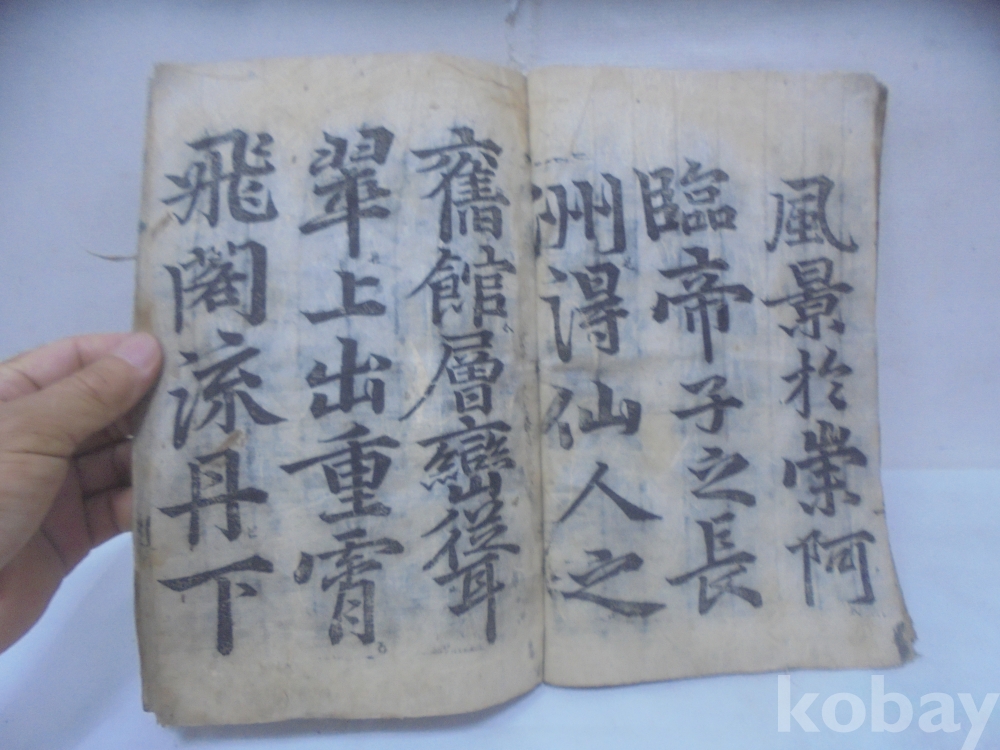 風景於崇阿
臨帝子之長
洲得仙人之
舊館層巒聳
翠上出重霄
飛閣流丹下
kobay